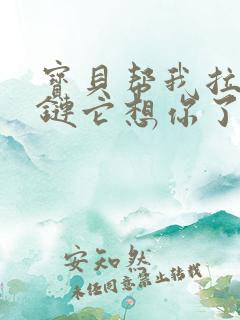 寶貝帮我拉
鏈它想你了
安知然
未经同意禁止转载